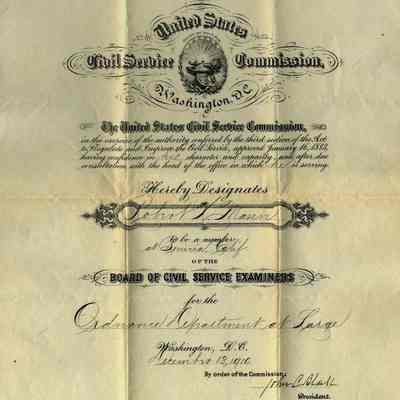 United States
Civil Service Commission,
Washington, D.C.
The United States Civil Service Commission,
in the exercise of the authority conferred by the third section of the Act
to Regulate and Improve the Civil Service, approved January 16, 1883,
having confidence in his character and capacity, and after due
consultation with the head of the office in which he is serving,
Hereby Designates
Mann
to be a member
at Benicia Calif
OF THE
BOARD OF CIVIL SERVICE EXAMINERS
for the
Ordnance Department at Large
Washington, D.C.
December 13, 1910
By order of the Commission:
John C Black
President.